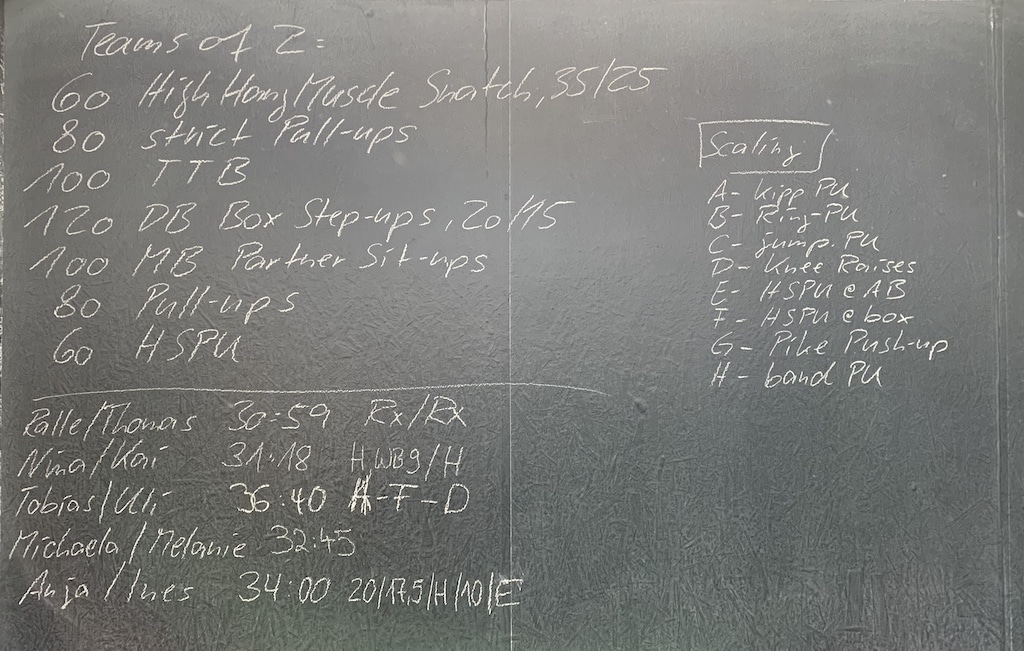 Teams of 2:
60 High Hang Muscle Snatch, 35/25
80 strict Pull-ups
100 TTB
120 DB Box Step-ups, 20/15
100 MB Partner Sit-ups
80 Pull-ups
60 HSPU
Ralle/Thomas 30:59 Rx/Rx
Nina/Kai 31:18 H, WB9/H
Tobias/Uli 36:40 H-F-D
Michaela/Melanie 32:45
Anja/Ines 34:00 20/17,5/H/10/E
Scaling
A- Kipp PU
B- Ring-PU
C- jump. PU
D- Knee Raises
E- HSPU @ AB
F- HSPU @ box
G- Pike Push-up
H- band PU